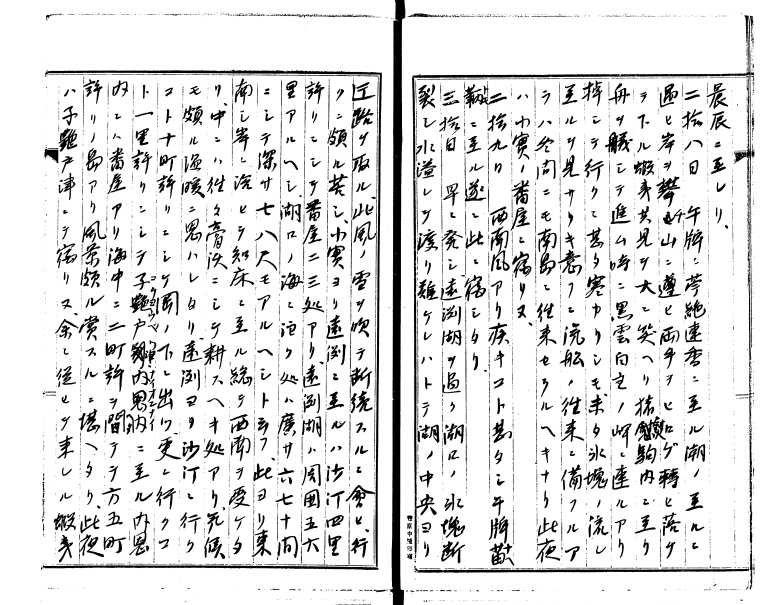 晨辰ニ至レリ、
二拾八日 午牌ニ芹絶連香ニ至ル潮ノ至ルニ
遇ヒ岸ヲ攀山ニ遵ヒ両手ヲヒロゲ轉ヒ落
テ下ル蝦夷其見ヲ大ニ笑ヘリ猿駒内ニ至リ
舟ヲ艤シテ進ム時ニ黒雲白主ノ岬ニ連ルアリ
掉シテ行クニ甚タ寒カリシモ未タ氷塊ノ流レ
至ルヲ見サリキ意フニ流舩ノ往来ニ備フルア
ラハ冬間ニモ南島ニ往来セラルヘキナリ此夜
ハ小實ノ番屋ニ宿リヌ
二拾九日 西南風アリ疾キコト甚タシ午牌
ニ至ル遂ニ此ニ宿シタリ
三拾日 早ニ発シ遠渕湖ヲ過ク湖口ノ氷塊断
裂シ水溢レテ渡リ難ケレハトテ湖ノ中央ヨリ
近路ヲ取ル此風ノ雪ヲ吹テ断続スルニ會ヒ行
クニ頗ル苦シ小實ヨリ遠渕ニ至ルハ沙汀四里
許リニシテ番屋二三処アリ遠渕湖ハ周囲五六
里アルヘシ湖口ノ海ニ注ク処ハ廣サ六七十間
ニシテ深サ七八尺モアルヘシト云フ此ヨリ東
南シ岸ニ沿ヒテ知床ニ至ル総テ西南ヲ受ケタ
リ中ニハ往々膏沃ニシテ耕スヘキ処アリ気候
モ頗ル温暖ニ思ハレタリ遠渕ヨリ沙汀ニ行ク
コト十町許リニシテ岡ノ下ニ出ツ更ニ行クコ
ト一里許リニシテ子戸内恩内ニ至ル内恩
内ニハ番屋アリ海中ニ二町許ヲ間テヽ方五町
許リノ島アリ風景頗ル賞スルニ堪ヘタリ此夜
ハ子戸津ニテ宿リヌ余ニ従ヒテ来レル蝦夷